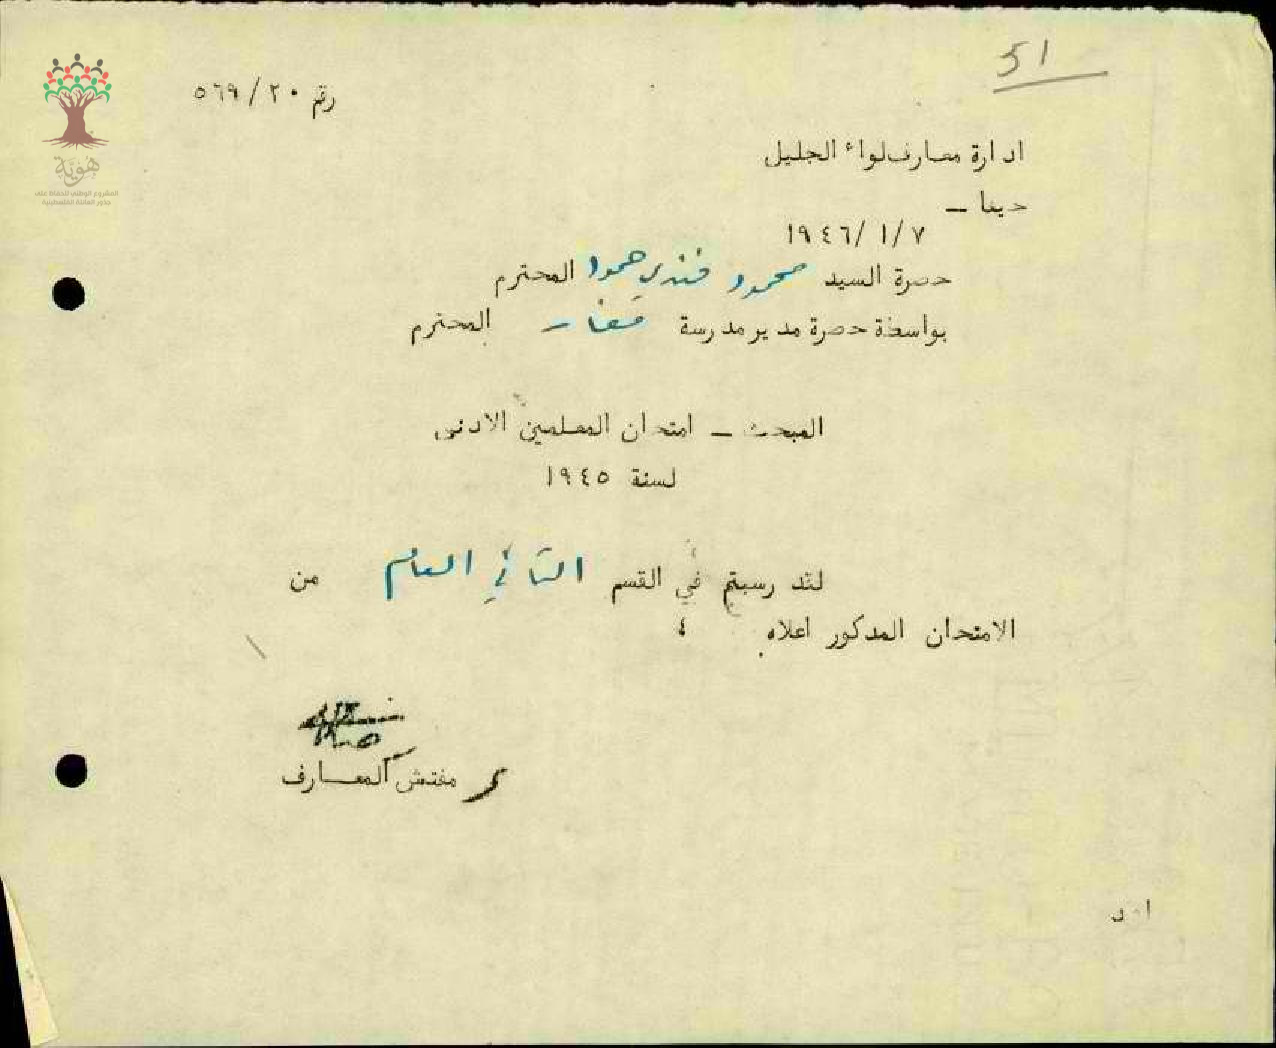 51
رقم ٥٦٩/٢٠
هوية
المشروع الوطني للحفاظ على
جذور العائلة الفلسطينية
ادارة معارف لواء الجليل
حيفا –
١٩٤٦/١/٧
حضرة السيد محمود فندي حمدا المحترم
بواسطة حضرة مدير مدرسة مغار المحترم
المبحث – امتحان المعلمين الادنى
لسنة ١٩٤٥
لقد رسبتم في القسم الثاني العام من
الامتحان المذكور اعلاه
مفتش المعارف